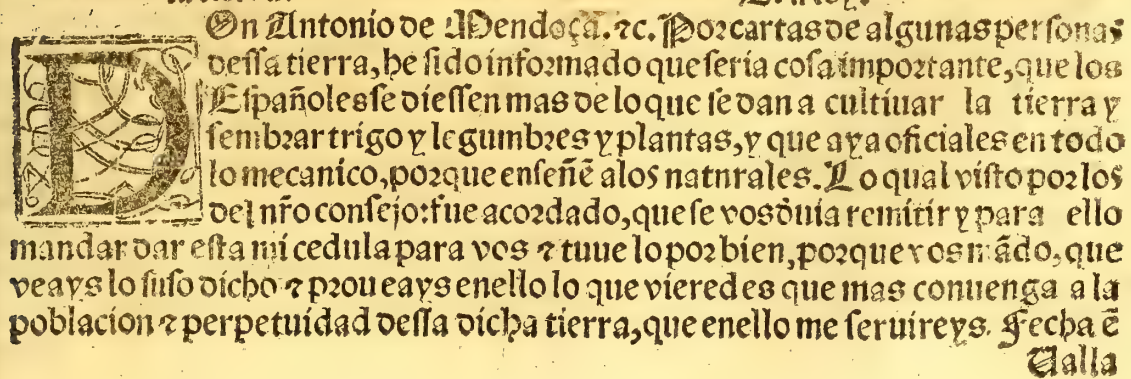 DOn Antonio de Mendoçã. ⁊c. Por cartas de algunas personas
dessa tierra, he sido informado que seria cosa importante, que los
Españoles se diessen mas de lo que se dan a cultiuar la tierra y
sembrar trigo y legumbres y plantas, y que aya oficiales en todo
lo mecanico, porque enseñẽ alos natnrales. Lo qual visto por los
del nr̃o consejo: fue acordado, que se vos d̃uia remitir y para ello
mandar dar esta mi cedula para vos ⁊ tuue lo por bien, porque vos mãdo, que
veays lo suso dicho ⁊ proueays enello lo que vieredes que mas conuenga a la
poblacion ⁊ perpetuidad dessa dicha tierra, que enello me seruireys. Fecha ẽ
Ualla